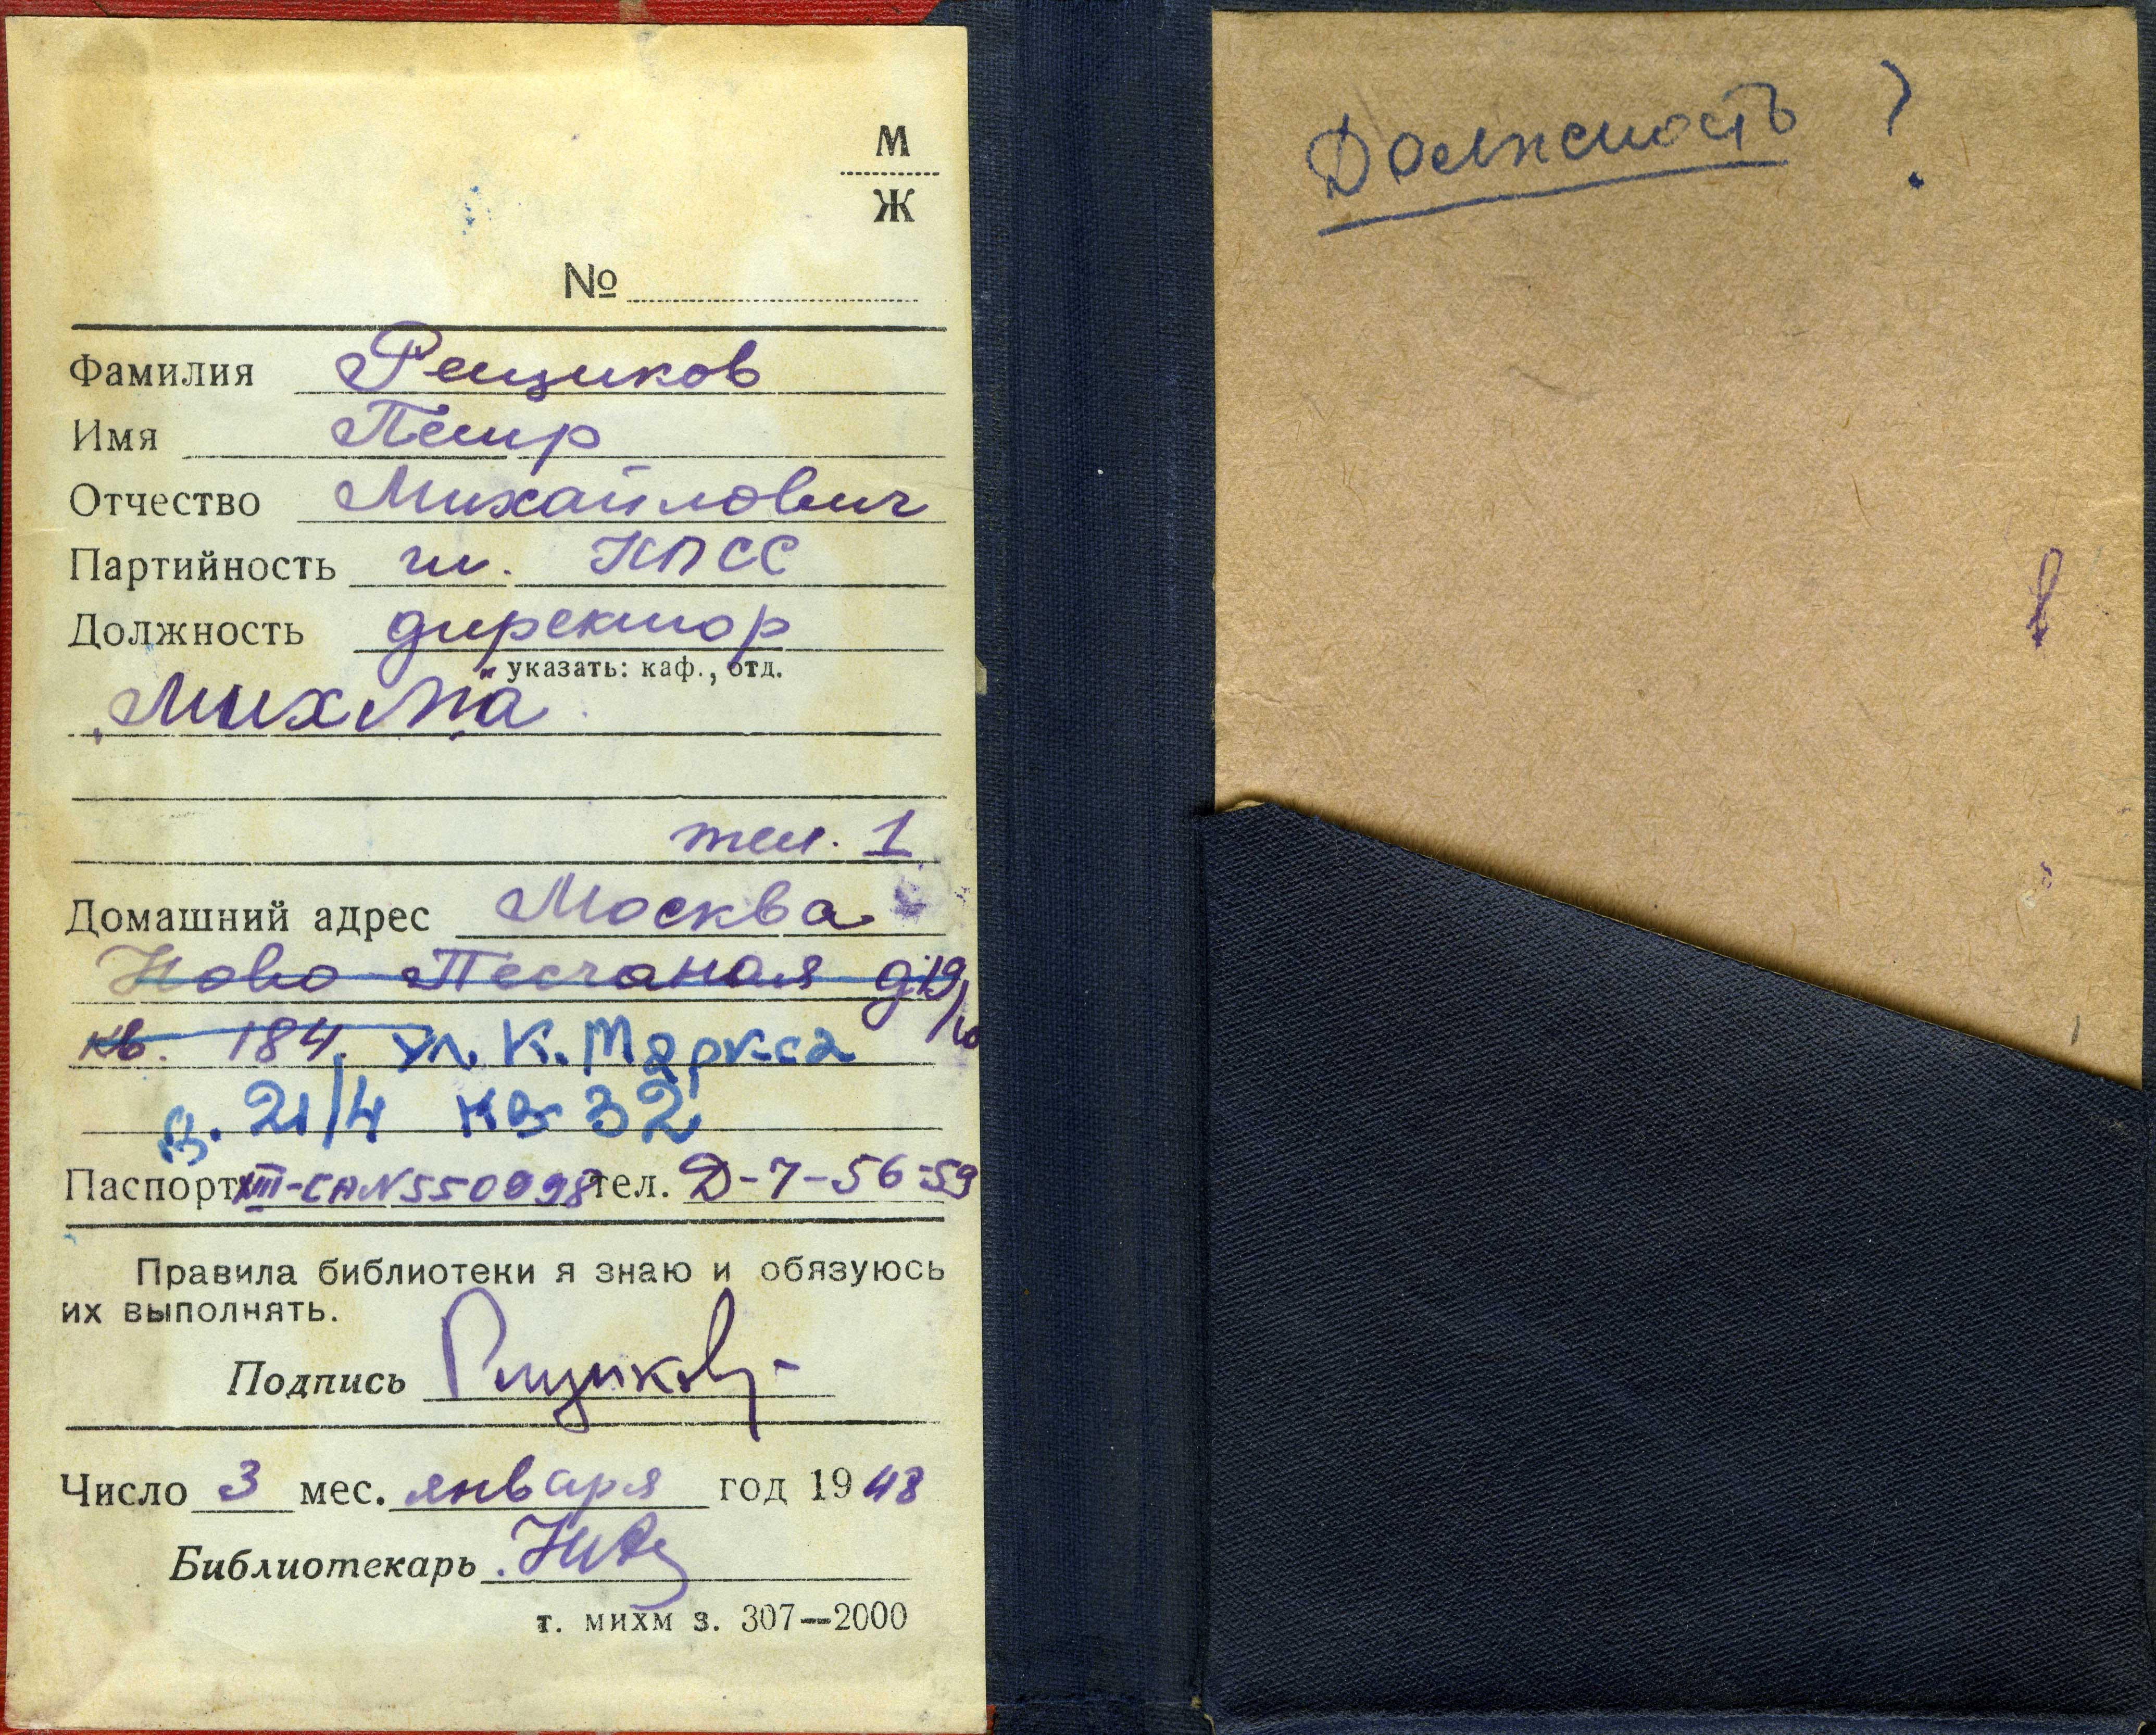 М
Ж
№
Фамилия Рещиков
Имя Петр
Отчество Михайлович
Партийность чл. КПСС
Должность директор
указать: каф., отд.
„МИХМ"а
тел. 1
Домашний адрес Москва
Ново Песчаная д19/
кв. 184. ул. К. Маркса
д. 21/4 кв 32
Паспорт XIII-СА N550098 тел. Д-7-56-59
Правила библиотеки я знаю и обязуюсь
их выполнять.
Подпись Рещиков
Число 3 мес. января год 1948
Библиотекарь
т. михм з. 307—2000
Должность ?
в